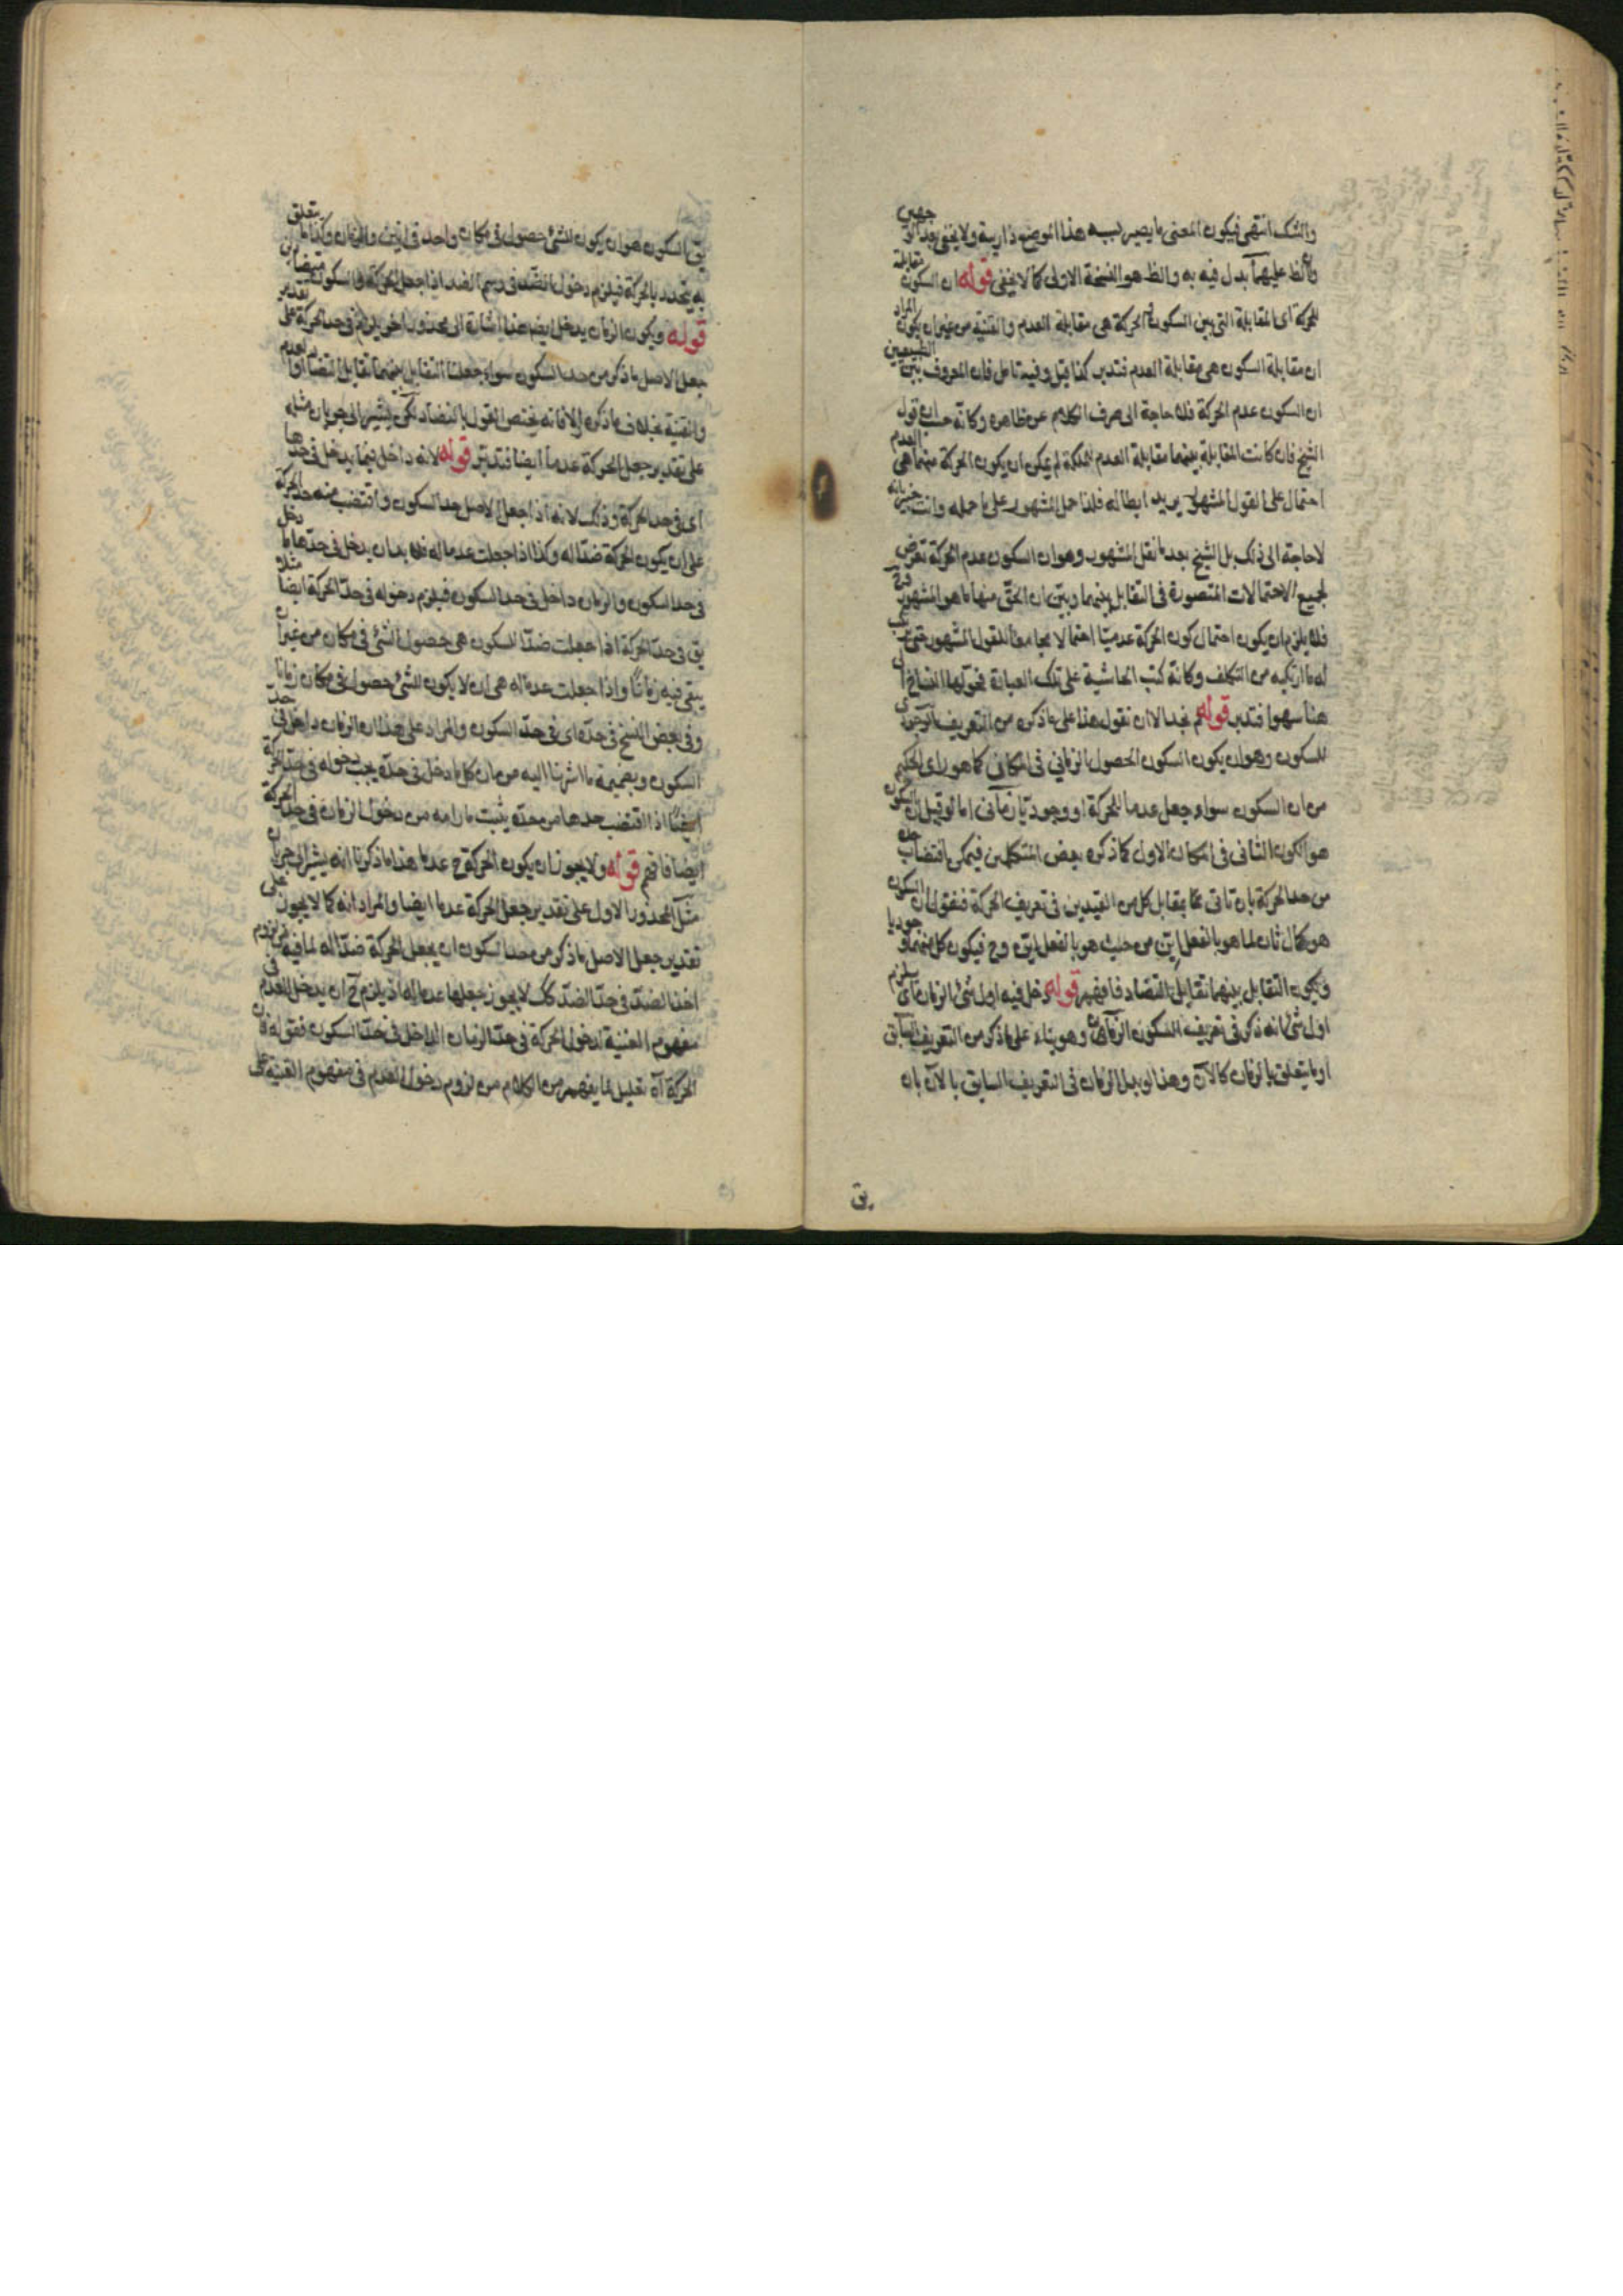 والشك انتهى فيكون المعنى ما يصير به هذا الموضع ذا ريبة ولا يخفى بعد الوجهين
والظ عليهما بدل فيه به والظ هو النسخة الاولى كما لا يخفى قوله ان السكون مقابلة
للحركة اى المقابلة التى بين السكون والحركة هى مقابلة العدم والقنية من غير ان يكون المراد
ان مقابلة السكون هى مقابلة العدم فتدبر كذا قيل وفيه تامل فان المعروف بين الطبيعيين
ان السكون عدم الحركة فلا حاجة الى صرف الكلام عن ظاهره وكانه حسب ان قول
الشيخ فان كانت المقابلة بينهما مقابلة العدم للملكة لم يمكن ان يكون الحركة منهما هى العدم
احتمال على القول المشهور يريد ابطاله فلذا حمل المشهور على ما حمله وانت خبير بانه
لا حاجة الى ذلك بل الشيخ بعد ما نقل المشهور وهو ان السكون عدم الحركة تعرض
لجميع الاحتمالات المتصورة فى التقابل بينهما وبين ان الحق منها ما هو المشهور
فلا يلزم ان يكون احتمال كون الحركة عدميا احتمالا مجامعا للقول المشهور حتى
له ما ارتكبه من التكلف وكانه كتب الحاشية على تلك العبارة فحولها النساخ
هنا سهوا فتدبر قوله ثم نجد الا ان نقول هذا على ما ذكره من التعريف
للسكون وهو ان يكون السكون الحصول الزمانى فى المكان كما هو راى الحكيم
من ان السكون سواء جعل عدما للحركة او وجوديا زمانى اما لو قيل ان السكون
هو الكون الثانى فى المكان الاول كما ذكره بعض المتكلمين فيمكن اقتضاب حده
من حد الحركة بان تاتى بما يقابل كل من القيدين فى تعريف الحركة فنقول ان السكون
هو كمال ثان لما هو بالفعل اين من حيث هو بالفعل اين وح فيكون كل منهما وجوديا
ويكون التقابل بينهما تقابل التضاد فافهم قوله دخل فيه اول شئ الزمان
اول شئ لانه ذكر فى تعريف السكون الزمان وهو بناء على ما ذكر من التعريف السابق
او ما يتعلق بالزمان كالآن وهذا لو بدل الزمان فى التعريف السابق بالآن بان
يق
يق السكون هو ان يكون للشئ حصول فى مكان واحد قبله وبعده وكذا ما يتعلق
به يتحدد بالحركة فيلزم دخول الضد فى رسم الضد اذا جعل الحركة والسكون متضادين
قوله ويكون الزمان يدخل ايضا هذا اشارة الى محذور اخر يلزم فى حد الحركة على تقدير
جعل الاصل ما ذكر من حد السكون سواء جعلنا التقابل بينهما تقابل التضاد او العدم
والقنية بخلاف ما ذكره اولا فانه يختص القول بالتضاد لكن يشير الى جريان مثله
على تقدير جعل الحركة عدما ايضا فتدبر قوله لانه داخل فيما يدخل فى حدها
اى فى حد الحركة وذلك لانه اذا جعل الاصل حد السكون واقتضب منه حد الحركة
على ان يكون الحركة ضدا له وكذا اذا جعلت عدما له فلا بد ان يدخل فى حدها ما دخل
فى حد السكون والزمان داخل فى حد السكون فيلزم دخوله فى حد الحركة ايضا مثلا
يق فى حد الحركة اذا جعلت ضدا للسكون هى حصول الشئ فى مكان من غير ان
يبقى فيه زمانا واذا جعلت عدما له هى ان لا يكون للشئ حصول فى مكان زمانا
وفى بعض النسخ فى حده اى فى حد السكون والمراد على هذا ان الزمان داخل فى حد
السكون وبضميمة ما اشرنا اليه من ان كل ما دخل فى حده يجب دخوله فى حد الحركة
ايضا اذا اقتضب حدها من حده يثبت ما رامه من دخول الزمان فى حد الحركة
ايضا فافهم قوله ولا يجوز ان يكون الحركة ح عدما هذا ما ذكرنا انه يشير الى جريان
مثل المحذور الاول على تقدير جعل الحركة عدما ايضا والمراد انه كما لا يجوز على
تقدير جعل الاصل ما ذكر من حد السكون ان يجعل الحركة ضدا له لما فيه من لزوم
اخذ الضد فى حد الضد كك لا يجوز جعلها عدما له اذ يلزم ح ان يدخل العدم فى
مفهوم القنية لدخول الحركة فى حد الزمان الداخل فى حد السكون فقوله فان
الحركة آه تعليل لما يفهم من الكلام من لزوم دخول العدم فى مفهوم القنية